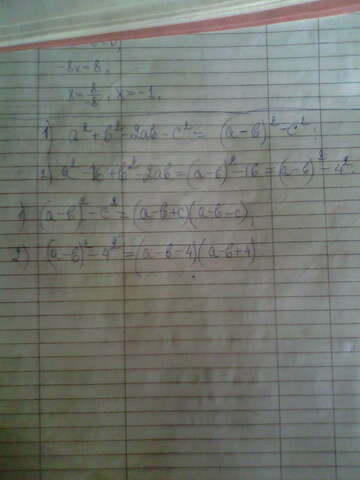 -8x=8,
x=8/-8, x=-1.
1) a²+b²-2ab-c²= (a-b)²-c²;
2) a²-16+b²-2ab=(a-b)²-16=(a-b)²-4²;
1) (a-b)²-c²=(a-b+c)(a-b-c),
2) (a-b)²-4²=(a-b-4)(a-b+4)